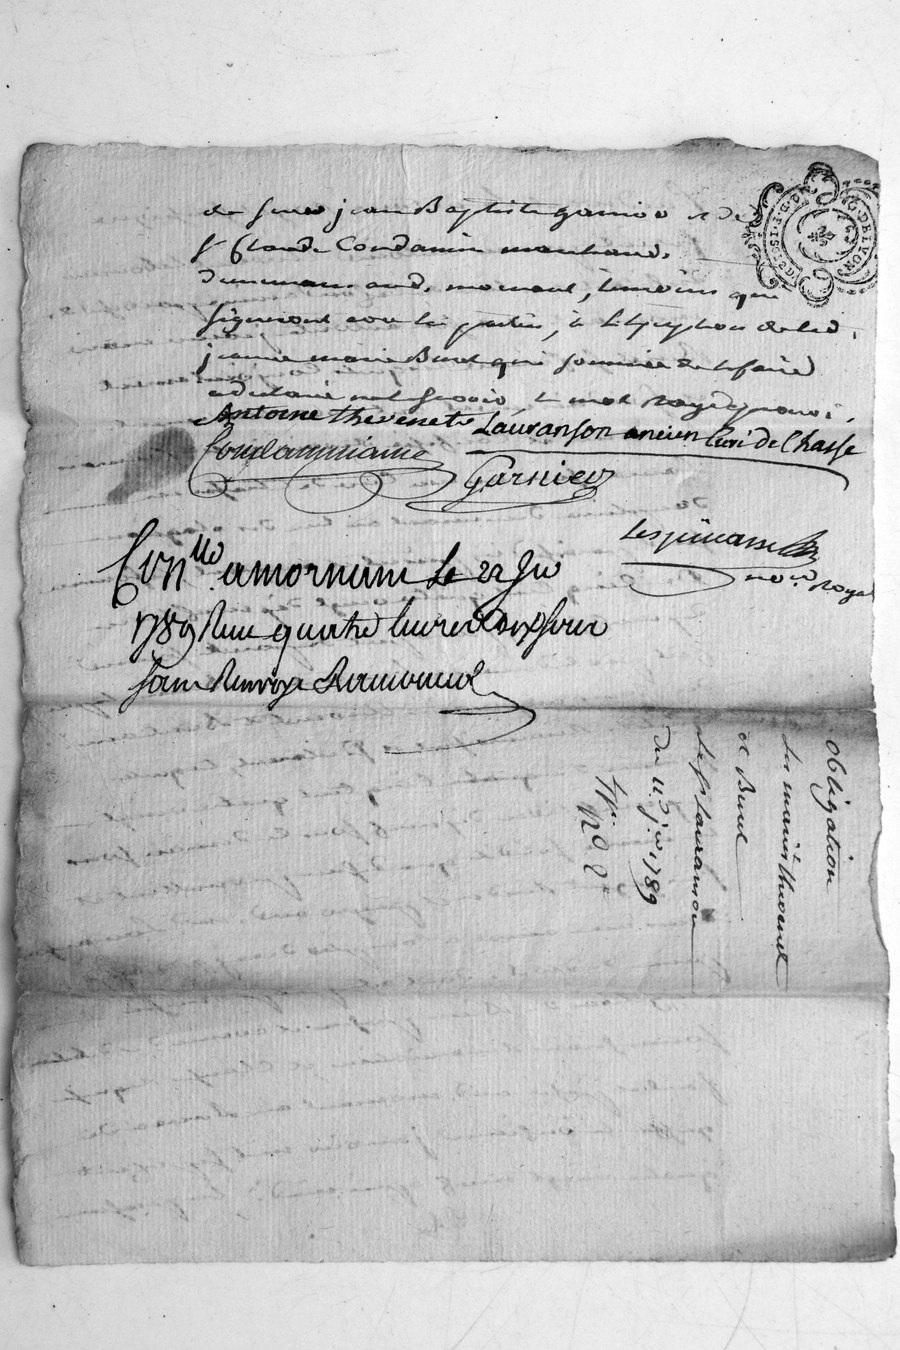 de sieur jean Baptiste garnier et de
sr Claude Condamin marchand,
demeurant aud. mornant, temoins qui
signeront avec les parties, à l'exception de lad.
jeanne marie Buret qui sommée de le faire
a declaré ne le sçavoir, le mot rayé
Antoine thevenet Lauranson ancien Curé de Chasse
Condamin Garnier
Lespinasse
nore. royal
Con.llé a mornant le 22 Jer
1789 Reçu quatre livres dix sous
sans Renvoye
obligation
Les mariés thevenet
et Buret
Le sr Lauranson
du 11e. j.er 1789
No 2